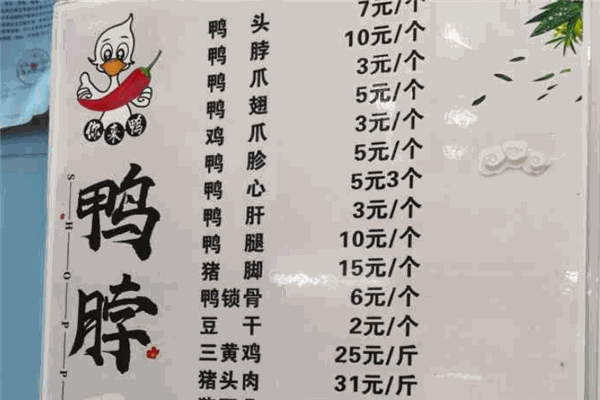 你来鸭
鸭脖
S H O P P
鸭头 7元/个
鸭脖 10元/个
鸭爪 3元/个
鸭翅 5元/个
鸡爪 3元/个
鸭胗 5元/个
鸭心 5元3个
鸭肝 3元/个
鸭腿 10元/个
猪脚 15元/个
鸭锁骨 6元/个
豆干 2元/个
三黄鸡 25元/斤
猪头肉 31元/斤